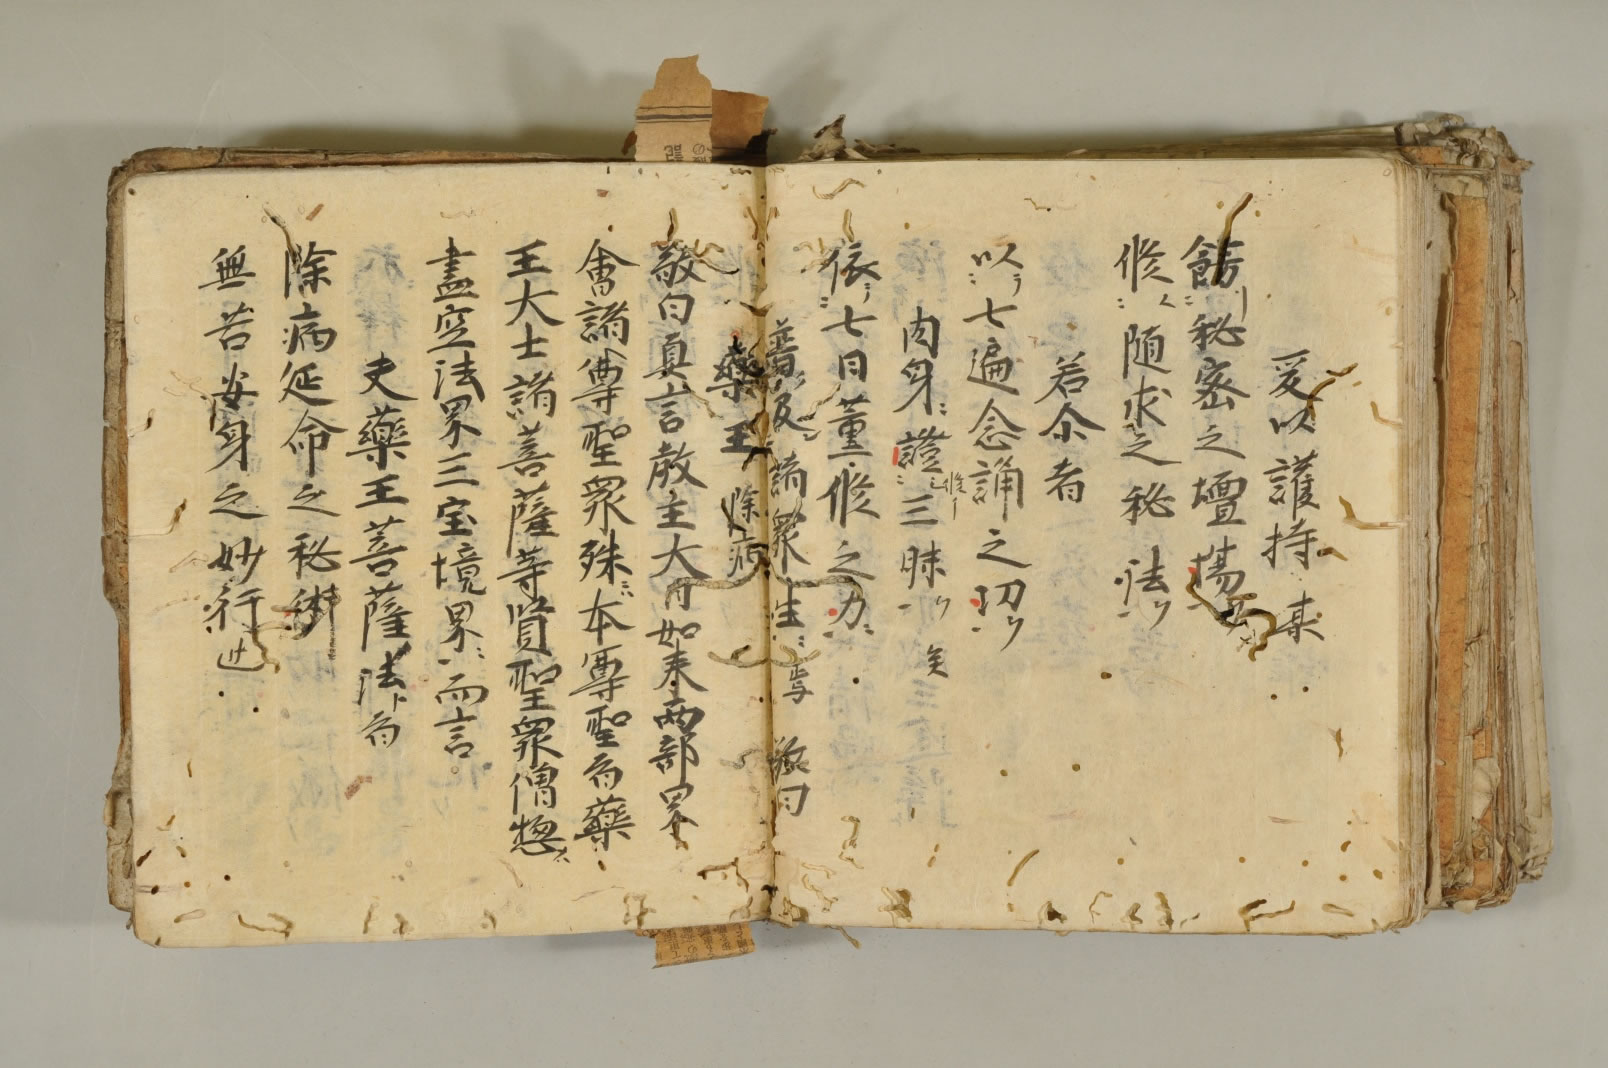 爰以護持某
餝秘密之壇場
修随求之秘法
若尒者
以七遍念誦之切
肉身證三昧矣
依七日薫修之力
普及諸衆生 敬白
藥王 除病
敬白真言教主大日如来両部界
會諸尊聖衆殊本尊聖者藥
王大士諸菩薩等賢聖衆僧惣
盡空法界三宝境界而言
夫藥王菩薩法者
除病延命之秘術
無苦安身之妙行也